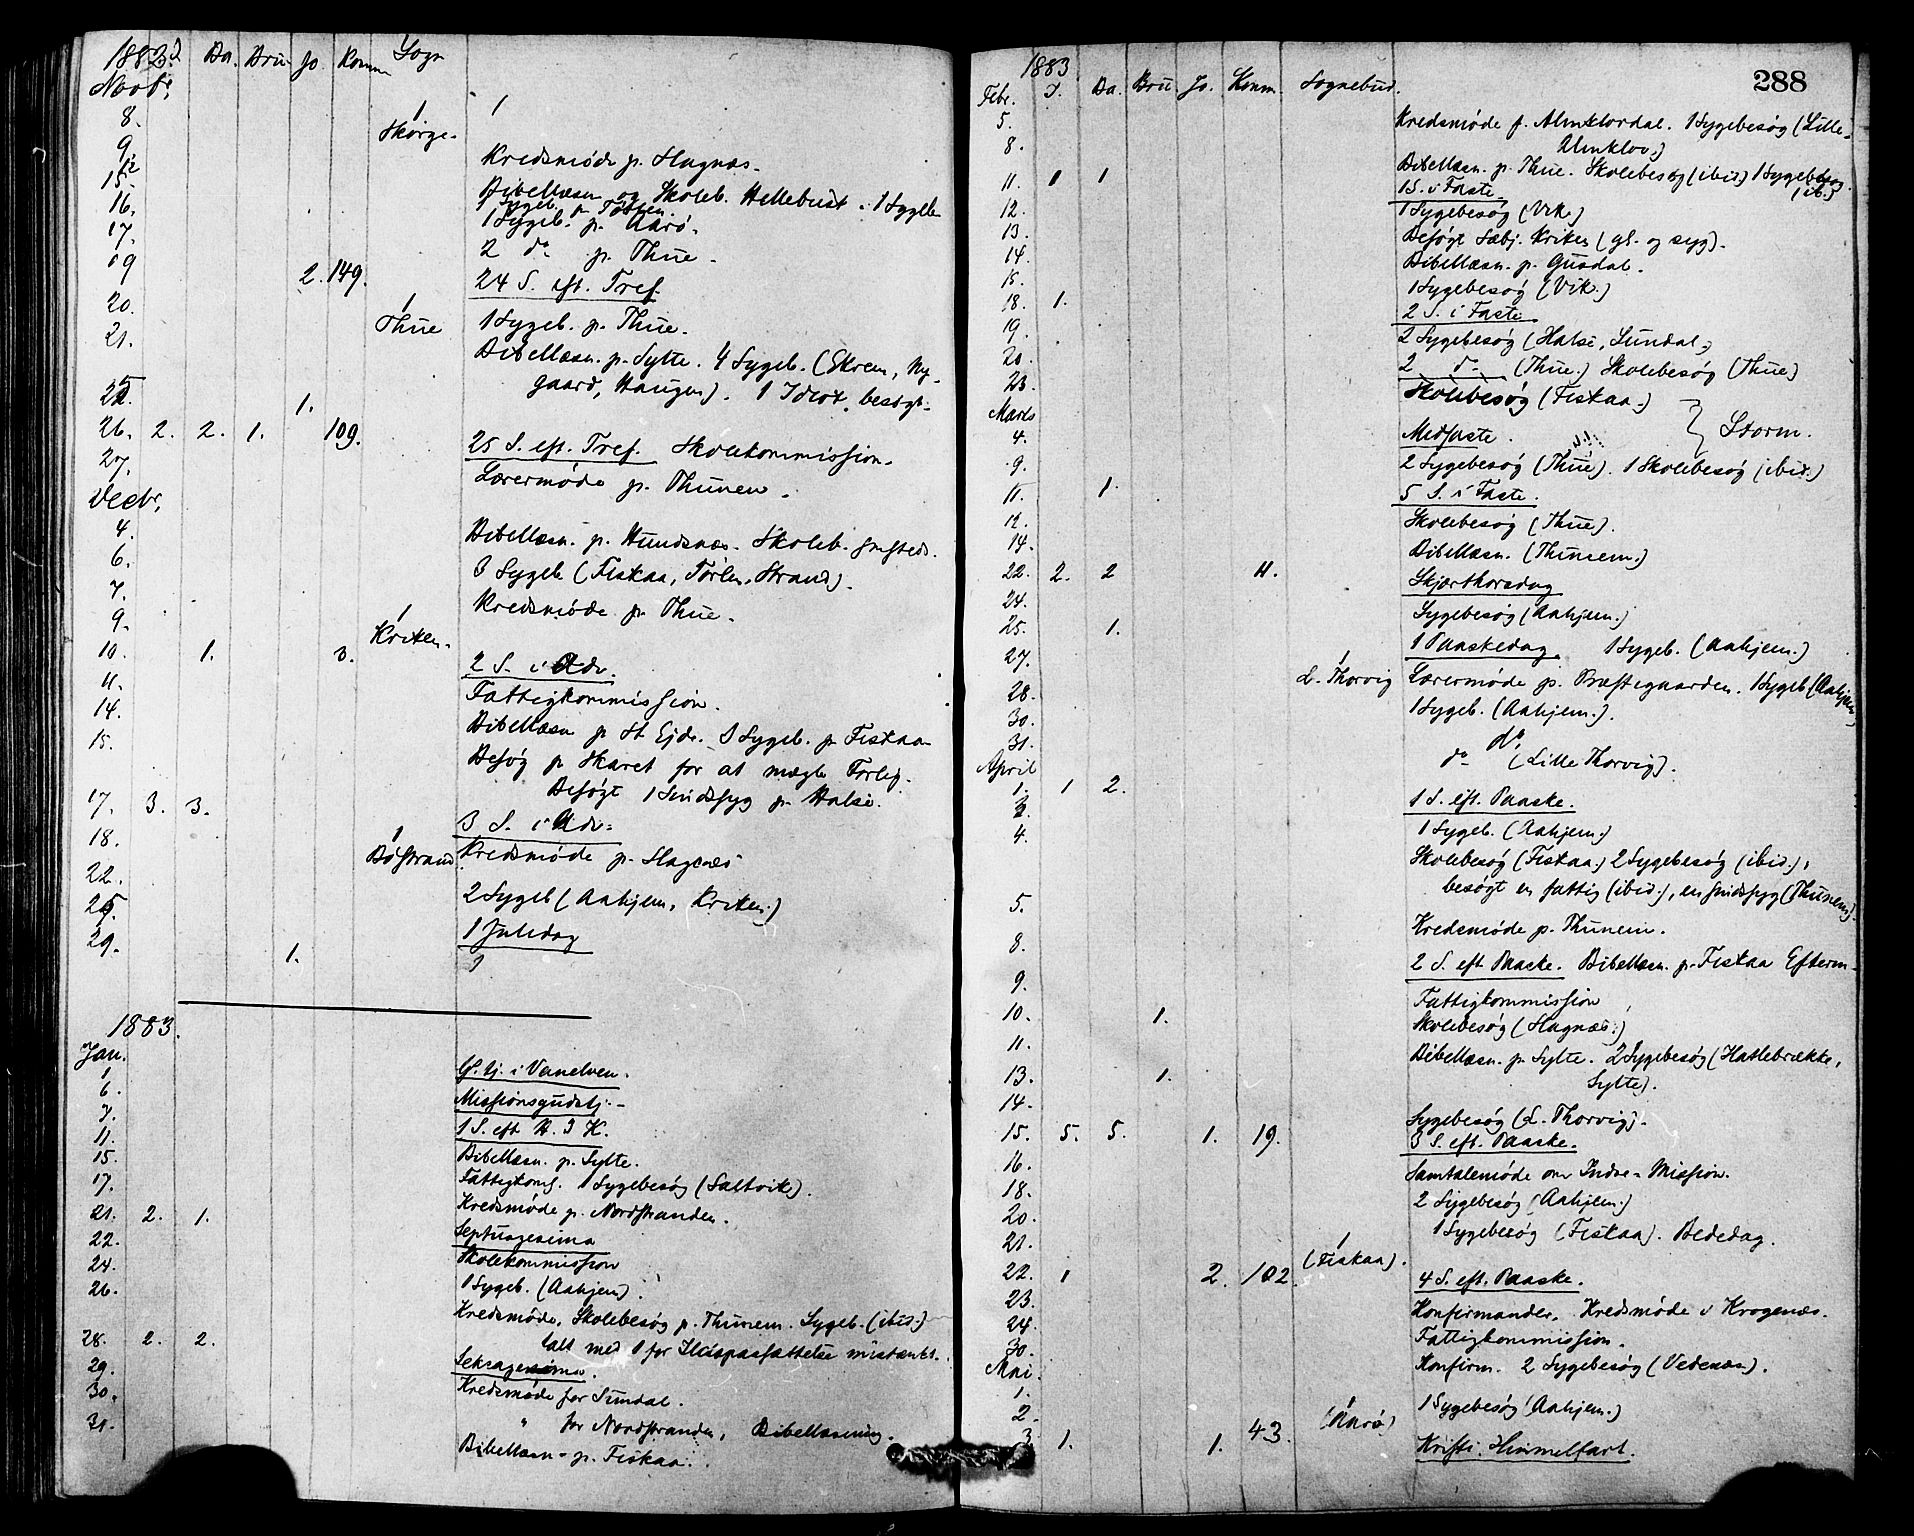 1882. D Da. Bru Jo. Komm Sogn
Novbr.
8. 1 Skorge. 1
9. Kredsmøde p. Hagnæs.
15. Bibellæsn. og Skoleb. Hellebust. 1 Sygeb.
1 Sygeb. p.
16. 1 Sygeb. p. Aarø.
17. 2 do p. Thue.
19 2. 149. 24 S. eft. Tref.
20. 1 Thue 1 Sygeb. p. Thue.
21. Bibellæsn. p. Sylte. 4 Sygeb. (Ekrem, Ny-
gaard, Haugen). 1 Idiot besøgt.
25. 1.
26. 2. 2. 1. 109. 25 S. eft. Tref. Skolekommission.
27. Lærermøde p. Thunem.
Decbr.
4. Bibellæsn. p. Hundsnæs. Skoleb. smsteds.
6. 3 Sygeb. (Fiskaa, Strand).
7. Kredsmøde p. Thue.
9. 1 Kriken.
10. 1. 3. 2 S. i Adv.
11. Fattigkommission.
14. Bibellæsn p. St. Ejde. 3 Sygeb. p. Fiskaa
15. Besøg p. Skaret for at mægle Forlig.
Besøgt 1 Sindssyg p. Halse.
17. 3. 3. 3 S. i Adv.
18. 1 Bøstrand Kredsmøde p. Hagnæs
22. 2 Sygeb (Aahjem, Kriken.)
25. 1 Juledag
29. 1.
1883.
Jan.
1 G. tj. i Vanelven.
6. Missionsgudstj.
7. 1 S. eft. H. 3 K.
11. Bibellæsn. p. Sylte.
15. Fattigkoms. 1 Sygebesøg (Saltvik).
17. Kredsmøde p. Nordstranden.
21. 2. 1. Septuagesima
22. Skolekommission
24. 1 Sygeb. (Aahjem).
26. Kredsmøde, Skolebesøg p. Thunem. Sygeb. (ibid.)
talt med 1 for Ildspaasættelse mistænkt.
28. 2. 2. Seksagesima.
29. Kredsmøde for Sundal.
30. " for Nordstranden, Bibellæsning.
31. Bibellæsn. p. Fiskaa.
288
1883
Febr. D. Da. Bru. Jo. Komm. Sognebud.
5. Kredsmøde f. Almklovdal. 1 Sygebesøg (Lille-
Almklov)
8. Bibellæsn. p. Thue. Skolebesøg (ibid) 1 Sygebesøg
(ib.)
11. 1 1 1 S. i Faste.
12. 1 Sygebesøg (Vik)
13. Besøgt Sæbj. Kriken (gl. og syg).
14. Bibellæsn. p. Gusdal.
15. 1 Sygebesøg (Vik.)
18. 1. 2 S. i Faste
19. 2 Sygebesøg (Halse, Sundal)
20. 2 do (Thue.) Skolebesøg (Thue)
23. Skolebesøg (Fiskaa.)
Marts
4. Midfaste. Storm.
9. 2 Sygebesøg (Thue). 1 Skolebesøg (ibid.)
11. 1. 5 S. i Faste.
12. Skolebesøg (Thue).
14. Bibellæsn. (Thunem.)
22. 2. 2 4. Skjærthorsdag
24. Sygebesøg (Aahjem.)
25. 1. 1 Paaskedag. 1 Sygeb. (Aahjem.)
27. 1 L. Thorvig Lærermøde p. Præstegaarden. 1 Sygeb (Aahjem)
28. 1 Sygeb. (Aahjem.).
30. do.
31. do (Lille Thorvig).
April
1. 1 2. 1 S. eft. Paaske.
2. 1 Sygeb. (Aahjem.)
4. Skolebesøg (Fiskaa.) 2 Sygebesøg (ibid.),
besøgt en fattig (ibid.), en sindssyg (Thunem).
5. Kredsmøde p. Thunem.
8. 2 S. eft Paaske. Bibellæsn. p. Fiskaa Efterm.
9. Fattigkommission
10. 1. Skolebesøg (Hagnæs.)
11. Bibellæsn. p. Sylte. 2 Sygebesøg (Hatlebrække,
Sylte).
13. 1.
14. Sygebesøg (L. Thorvig).
15. 5. 5. 1. 19. 3 S. eft. Paaske.
16. Samtalemøde om Indre-Mission.
18. 2 Sygebesøg (Aahjem.)
20. 1 Sygebesøg (Fiskaa). Bededag.
21. 1 (Fiskaa).
22. 1 2. 102. 4 S. eft. Paaske.
23. Konfirmander. Kredsmøde i Krogenæs.
24. Fattigkommission.
30. Konfirm. 2 Sygebesøg (Vedenæs).
Mai.
1. 1 Sygebesøg (Aahjem.)
2. (Aarø)
3 1. 1. 43. Kristi Himmelfart.